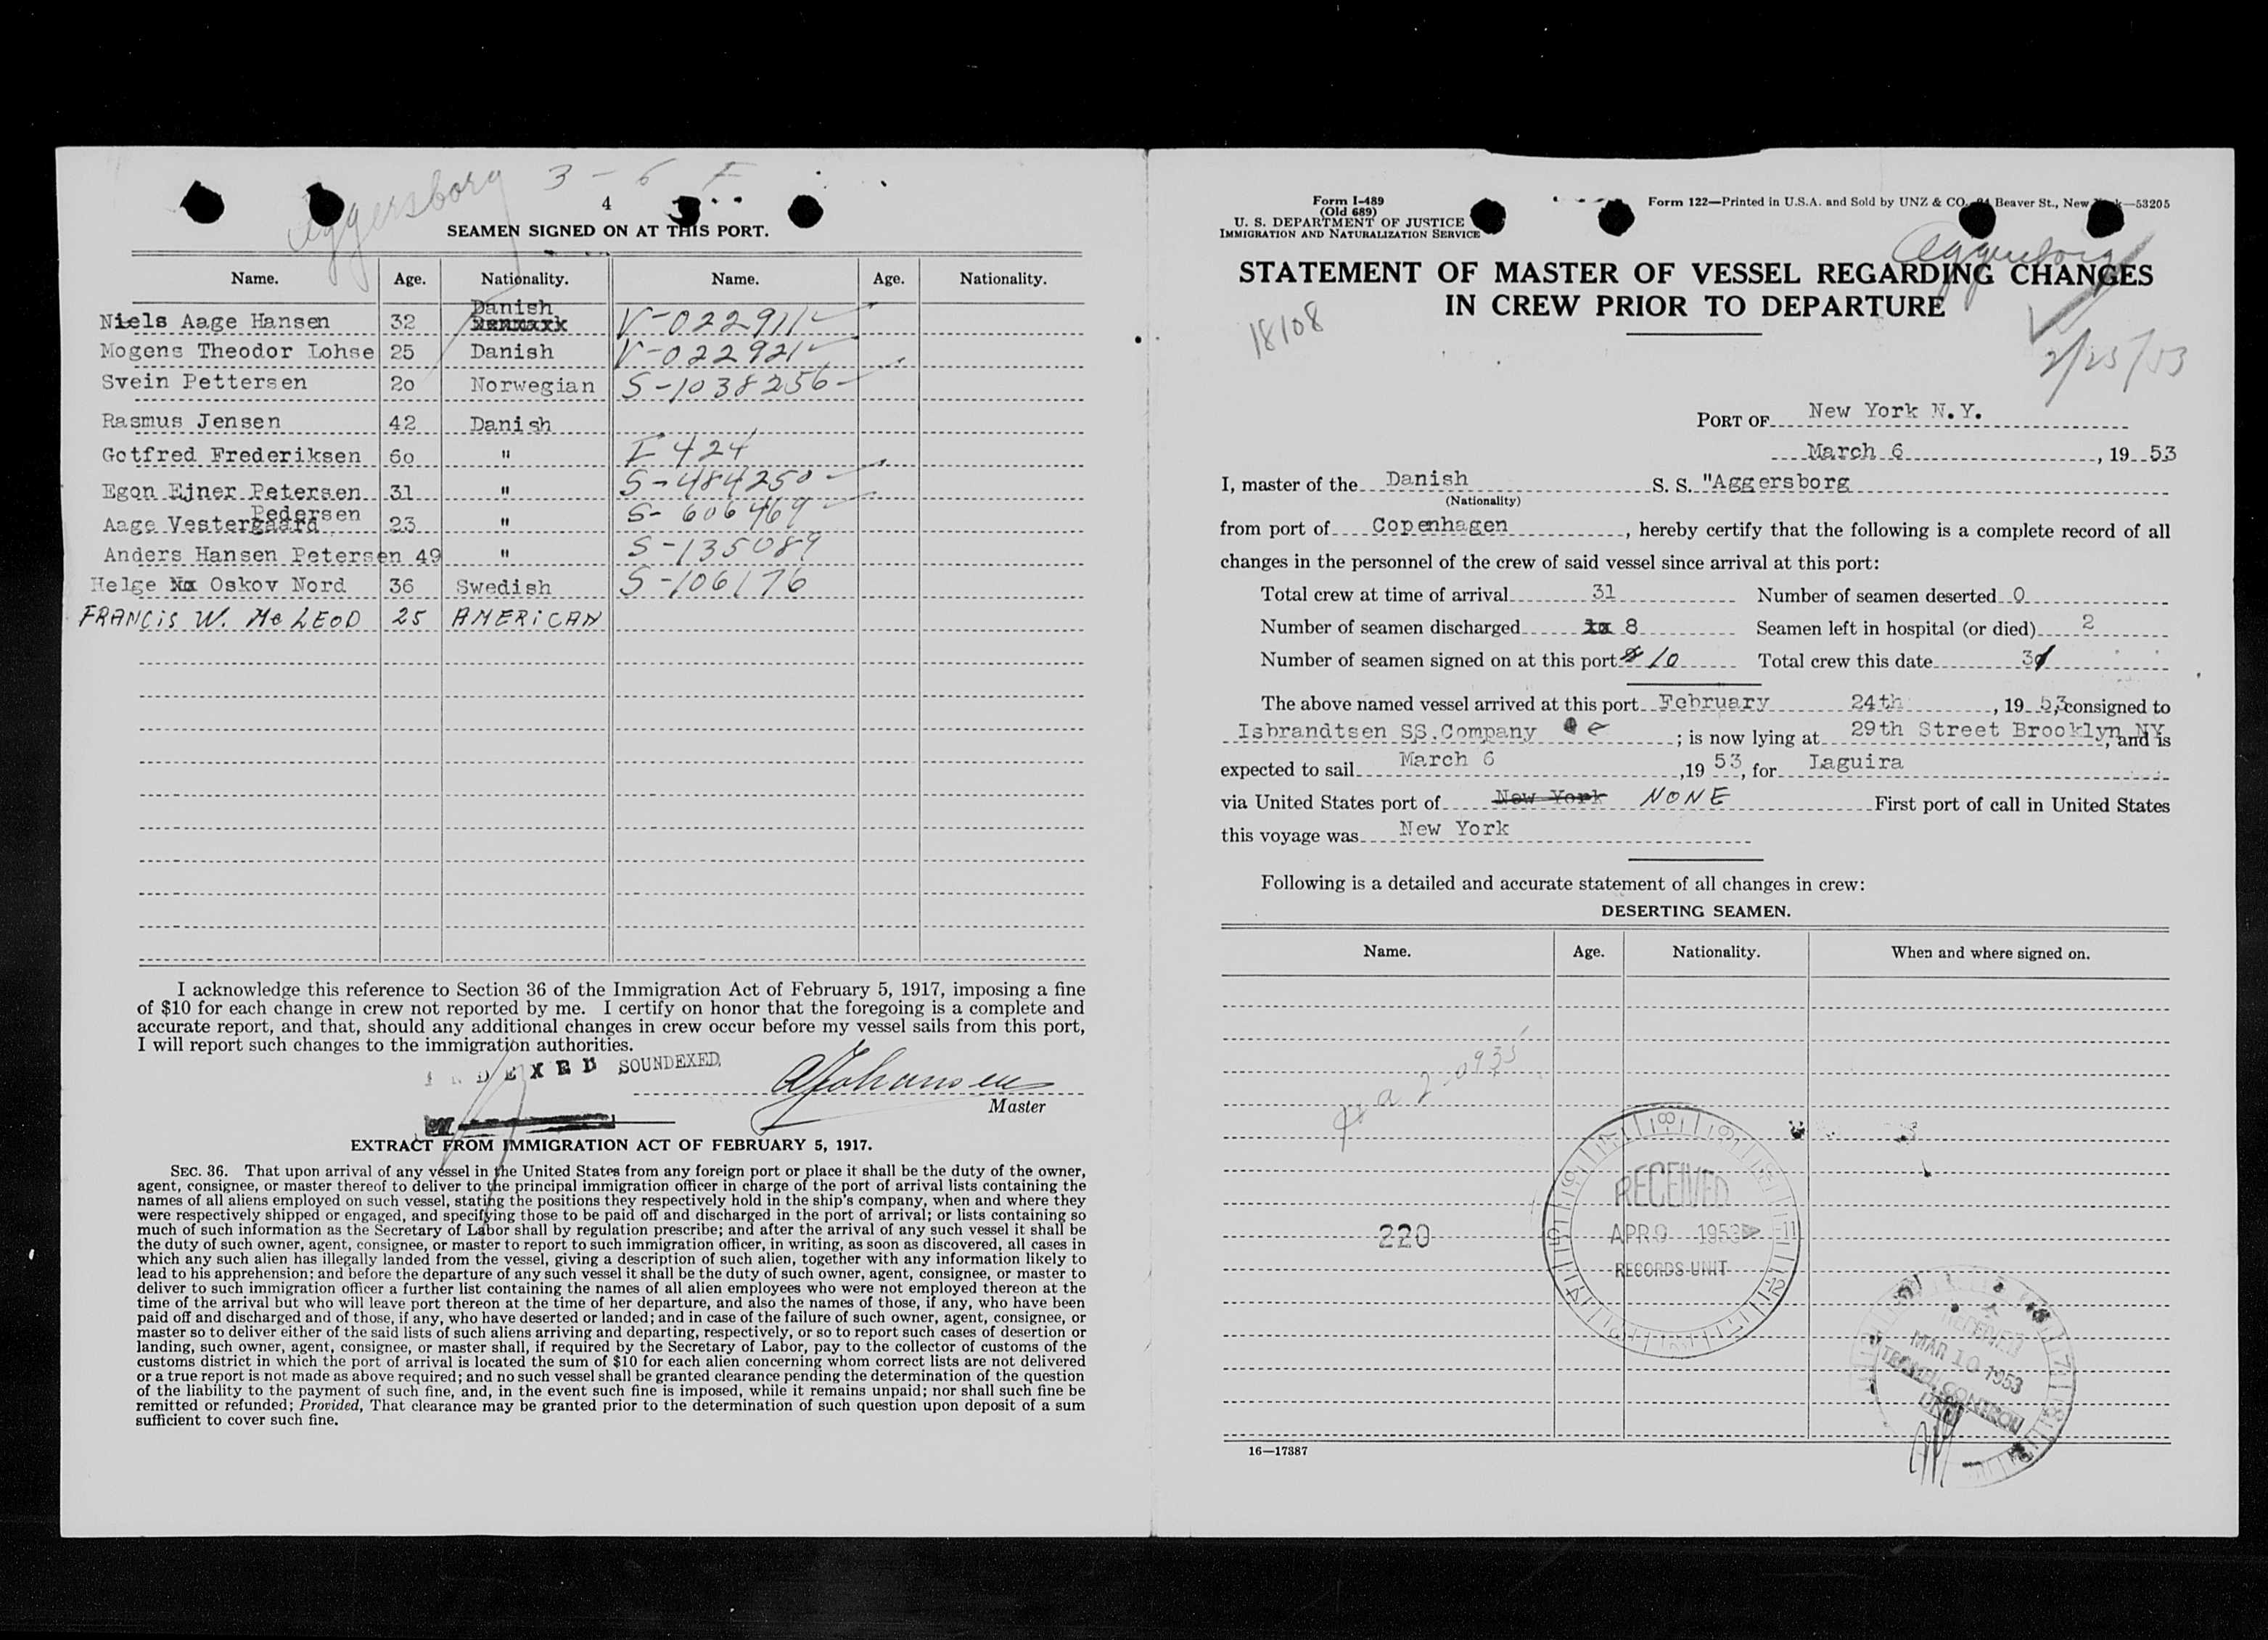 Aggersborg 3 - 6 F
4
SEAMEN SIGNED ON AT THIS PORT.
Name. Age. Nationality. Name. Age. Nationality.
Danish
Niels Aage Hansen 32 Denmark V-022911
Mogens Theodor Lohse 25 Danish V-022921
Svein Pettersen 20 Norwegian S-1038256
Rasmus Jensen 42 Danish
Gotfred Frederiksen 60 " I 424
Egon Ejner Petersen 31 " S-484250
Pedersen
Aage Vestergaard 23 " S-606469
Anders Hansen Petersen 49 " S-135089
Helge Oskov Nord 36 Swedish S-106176
FRANCIS W. Mc LEOD 25 AMERICAN
I acknowledge this reference to Section 36 of the Immigration Act of February 5, 1917, imposing a fine
of $10 for each change in crew not reported by me. I certify on honor that the foregoing is a complete and
accurate report, and that, should any additional changes in crew occur before my vessel sails from this port,
I will report such changes to the immigration authorities.
INDEXED SOUNDEXED,
AJohansen
Master
EXTRACT FROM IMMIGRATION ACT OF FEBRUARY 5, 1917.
SEC. 36. That upon arrival of any vessel in the United States from any foreign port or place it shall be the duty of the owner,
agent, consignee, or master thereof to deliver to the principal immigration officer in charge of the port of arrival lists containing the
names of all aliens employed on such vessel, stating the positions they respectively hold in the ship's company, when and where they
were respectively shipped or engaged, and specifying those to be paid off and discharged in the port of arrival; or lists containing so
much of such information as the Secretary of Labor shall by regulation prescribe; and after the arrival of any such vessel it shall be
the duty of such owner, agent, consignee, or master to report to such immigration officer, in writing, as soon as discovered, all cases in
which any such alien has illegally landed from the vessel, giving a description of such alien, together with any information likely to
lead to his apprehension; and before the departure of any such vessel it shall be the duty of such owner, agent, consignee, or master to
deliver to such immigration officer a further list containing the names of all alien employees who were not employed thereon at the
time of the arrival but who will leave port thereon at the time of her departure, and also the names of those, if any, who have been
paid off and discharged and of those, if any, who have deserted or landed; and in case of the failure of such owner, agent, consignee, or
master so to deliver either of the said lists of such aliens arriving and departing, respectively, or so to report such cases of desertion or
landing, such owner, agent, consignee, or master shall, if required by the Secretary of Labor, pay to the collector of customs of the
customs district in which the port of arrival is located the sum of $10 for each alien concerning whom correct lists are not delivered
or a true report is not made as above required; and no such vessel shall be granted clearance pending the determination of the question
of the liability to the payment of such fine, and, in the event such fine is imposed, while it remains unpaid; nor shall such fine be
remitted or refunded; Provided, That clearance may be granted prior to the determination of such question upon deposit of a sum
sufficient to cover such fine.
Form I-489
(Old 689)
U. S. DEPARTMENT OF JUSTICE
IMMIGRATION AND NATURALIZATION SERVICE
Form 122—Printed in U.S.A. and Sold by UNZ & CO. Beaver St., New —53205
Aggersborg
STATEMENT OF MASTER OF VESSEL REGARDING CHANGES
IN CREW PRIOR TO DEPARTURE
18108
2/25/53
PORT OF New York N.Y.
March 6, 19 53
I, master of the Danish S. S. "Aggersborg
(Nationality)
from port of Copenhagen, hereby certify that the following is a complete record of all
changes in the personnel of the crew of said vessel since arrival at this port:
Total crew at time of arrival 31 Number of seamen deserted 0
Number of seamen discharged 8 Seamen left in hospital (or died) 2
Number of seamen signed on at this port 10 Total crew this date 31
The above named vessel arrived at this port February 24th, 19 53, consigned to
Isbrandtsen SS.Company; is now lying at 29th Street Brooklyn NY, and is
expected to sail March 6, 19 53, for Laguira
via United States port of New York NONE First port of call in United States
this voyage was New York
Following is a detailed and accurate statement of all changes in crew:
DESERTING SEAMEN.
Name. Age. Nationality. When and where signed on.
RECEIVED
220 APR 9 1953
RECORDS UNIT
RECEIVED
MAR 10 1953
CONTROL
UNIT
16—17387